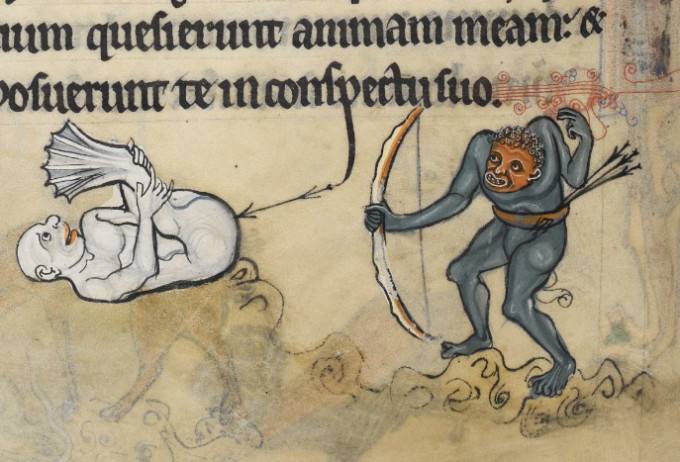 ium quesierunt animam meam: &
posuerunt te in conspectu suo.